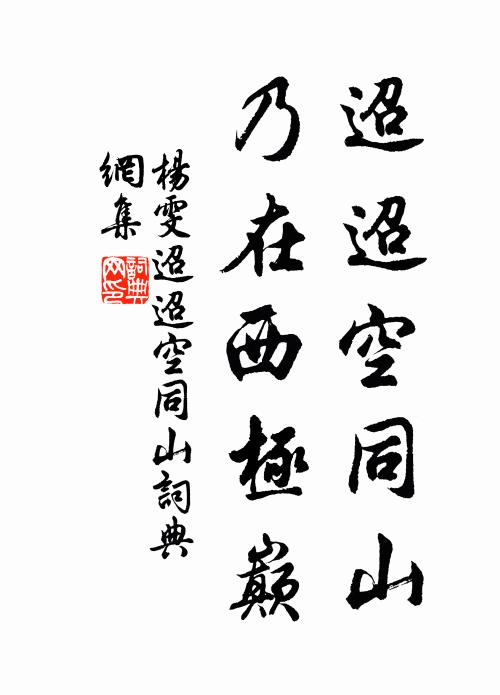 迢迢空同山
乃在西極巔
楊雯迢迢空同山詞典
網集
詞典
网印